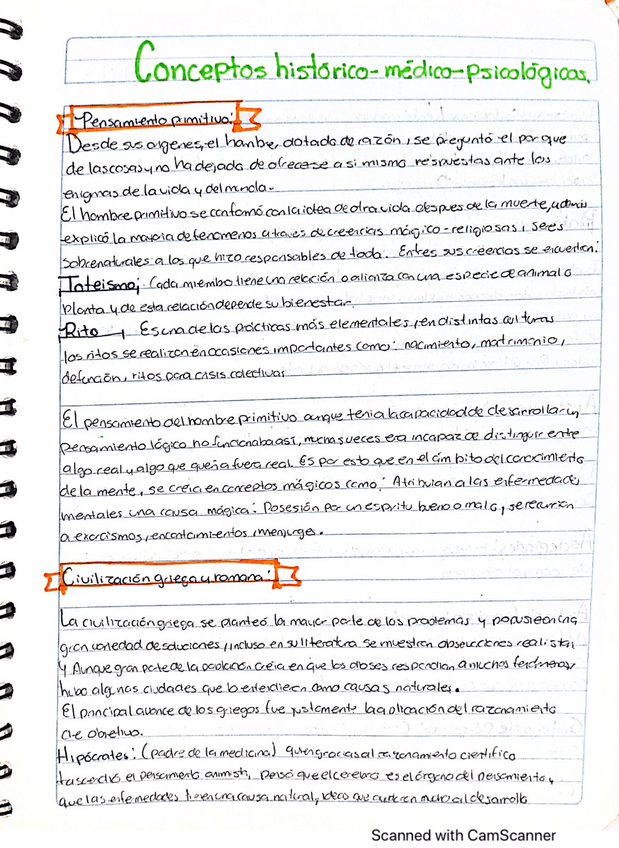 Conceptos histórico-médico-psicológicos.
Pensamiento primitivo:
Desde sus orígenes, el hombre, dotado de razón, se preguntó el por que
de las cosas y no ha dejado de ofrecerse a si mismo respuestas ante los
enigmas de la vida y del mundo.
El hombre primitivo se conformó con la idea de otra vida después de la muerte, además
explicó la mayoria de fenomenos a traves de creencias mágico-religiosas, seres
sobrenaturales a los que hizo responsables de todo. Entes sus creencias se encuentran:
Toteismo: Cada miembo tiene una relación o alianza con una especie de animal o
planta y de esta relación depende su bienestar.
Rito Es una de las prácticas más elementales, en distintas culturas
los ritos se realizan en ocasiones importantes como: nacimiento, matrimonio,
defunción, ritos para crisis colectivas
El pensamiento del hombre primitivo aunque tenia la capacidad de desarrollar un
pensamiento lógico no funcionaba así, muchas veces era incapaz de distinguir entre
algo real y algo que quería fuera real. Es por esto que en el ámbito del conocimiento
de la mente, se creía en conceptos mágicos como: Atribuian a las enfermedades
mentales una causa mágica: Posesión por un espiritu bueno o malo, se recurrían
a exorcismos, encantamientos, menjurges.
Civilización griega y romana:
La civilización griega se planteó la mayor parte de los problemas y propusieron una
gran variedad de soluciones, incluso en su literatura se muestran observaciones realistas
y Aunque gran parte de la población creía en que los dioses respondían a muchos fenómenos
hubo algunas ciudades que lo entendieron como causas naturales.
El principal avance de los griegos fue justamente la aplicación del razonamiento
objetivo.
Hipócrates: (padre de la medicina) quien gracias al razonamiento cientifico
trascendió el pensamiento animista, pensó que el cerebro es el órgano del pensamiento,
que las enfermedades tienen una causa natural, ideas que ayudaron mucho al desarrollo
Scanned with CamScanner